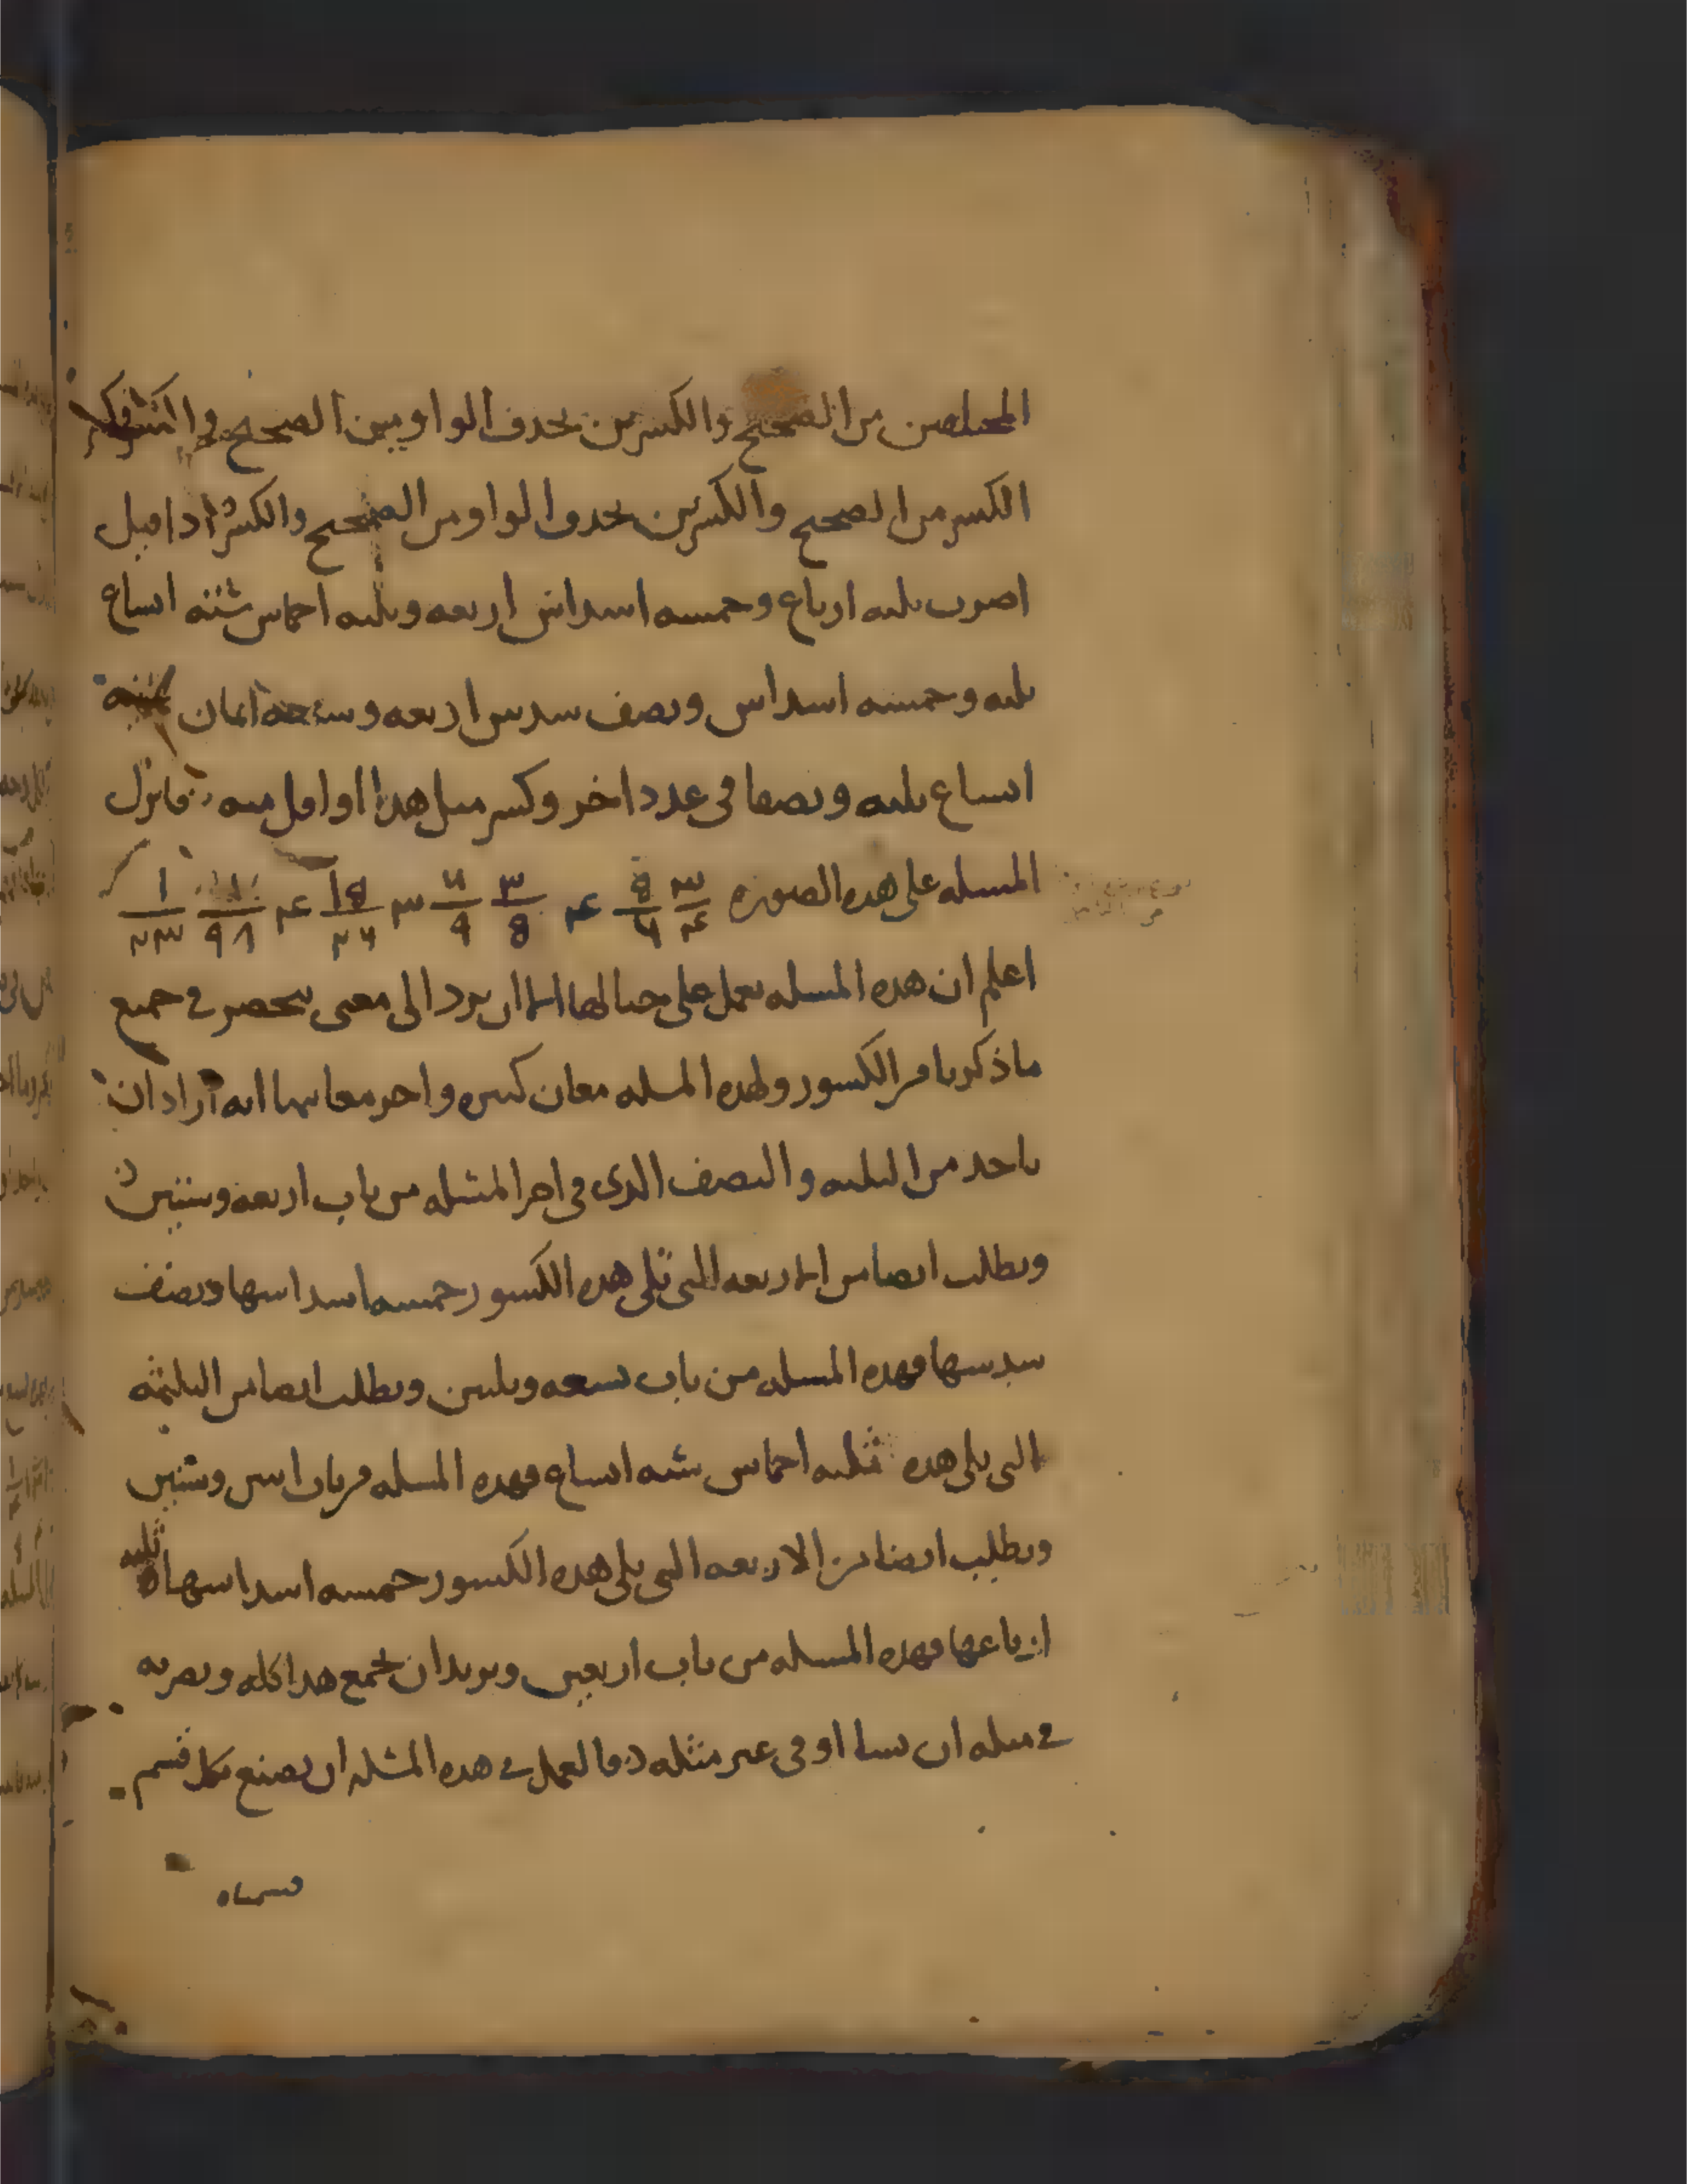 المختلفين من الصحيح والكسر من بحذف الواو بين الصحيح و
الكسر من الصحيح والكسرين بحذف الواو من الصحيح والكسر اذا قيل
اضرب ثلثه ارباع وخمسه اسداس اربعه وثلثه اخماس سته اتساع
ثلثه وخمسه اسداس ونصف سدس اربعه وسبعه اثمان
اتساع ثلثه ونصفا فى عدد اخر وكسر مثل هذا او اقل منه فانزل
المسله على هذه الصوره ٣/٤ ٥/٦ ٤ ٣/٥ ٦/٩ ٣
اعلم ان هذه المسله تعمل على حيالها الا ان يرد الى معنى ينحصر فى جميع
ما ذكرنا من الكسور ولهذه المسله معان كثيره واحد معانيها انه اراد ان
ياخذ من الثلثه والنصف الذى فى اخر المسئله من باب اربعه وستين
ويطلب ايضا من الاربعه التى تلى هذه الكسور خمسه اسداسها ونصف
سدسها فهذه المسله من باب تسعه وثلثين ويطلب ايضا من الثلثه
التى تلى هذه ثلثه اخماس سته اتساع فهذه المسله من باب اثنين وستين
ويطلب ايضا من الاربعه التى تلى هذه الكسور خمسه اسداسها ثلثه
ارباعها فهذه المسله من باب اربعين ويريد ان تجمع هذا كله وتضربه
فى مثله ان شا او فى غير مثله فالعمل فى هذه المسئله ان تصنع بكل قسم
قسمناه